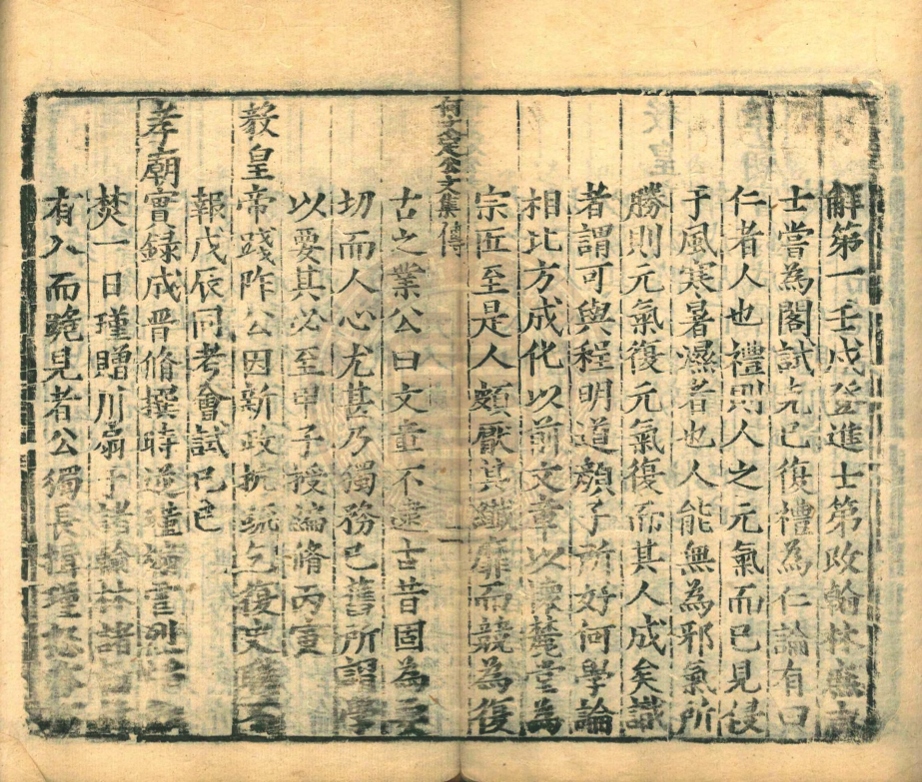 解第一壬戌登進士第改翰林庶吉
士嘗為閣試克己復禮為仁論有曰
仁者人也禮則人之元氣而已見侵
于風寒暑濕者也人能無為邪氣所
勝則元氣復元氣復而其人成矣識
者謂可與程明道顏子所好何學論
相比方成化以前文章以懷麓堂為
宗匠至是人頗厭其纖靡而競為復
何文定公文集傳
二
古之業公曰文章不逮古昔固為
切而人心尤甚乃獨務已舊所謂學
以要其必至甲子授編脩丙寅
毅皇帝踐阼公因新政抗疏乞復史職不
報戊辰同考會試己巳
孝廟實録成晋脩撰時逆瑾
焚一日瑾贈川扇于諸翰林諸
有入而跪見者公獨長揖瑾怒